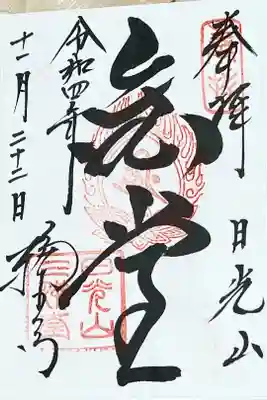 奉拝
日光山
金堂
令和四年
十一月二十二日
輪王寺
日光山